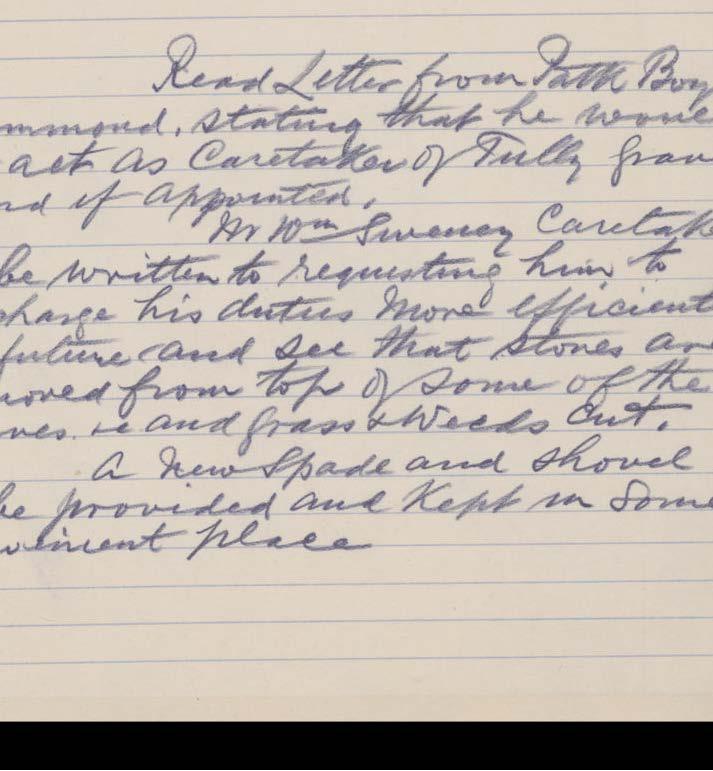 Read Letter from Patk Boy
mmond, stating that he woul
act as Caretaker of Tully grav
nd if appointed.
Mr Wm Sweeney Caretak
be written to requesting him to
charge his duties More efficient
future and see that stones are
moved from top of some of the
ves. and grass & Weeds Cut.
A New Spade and shovel
be provided and Kept in Some
venient place